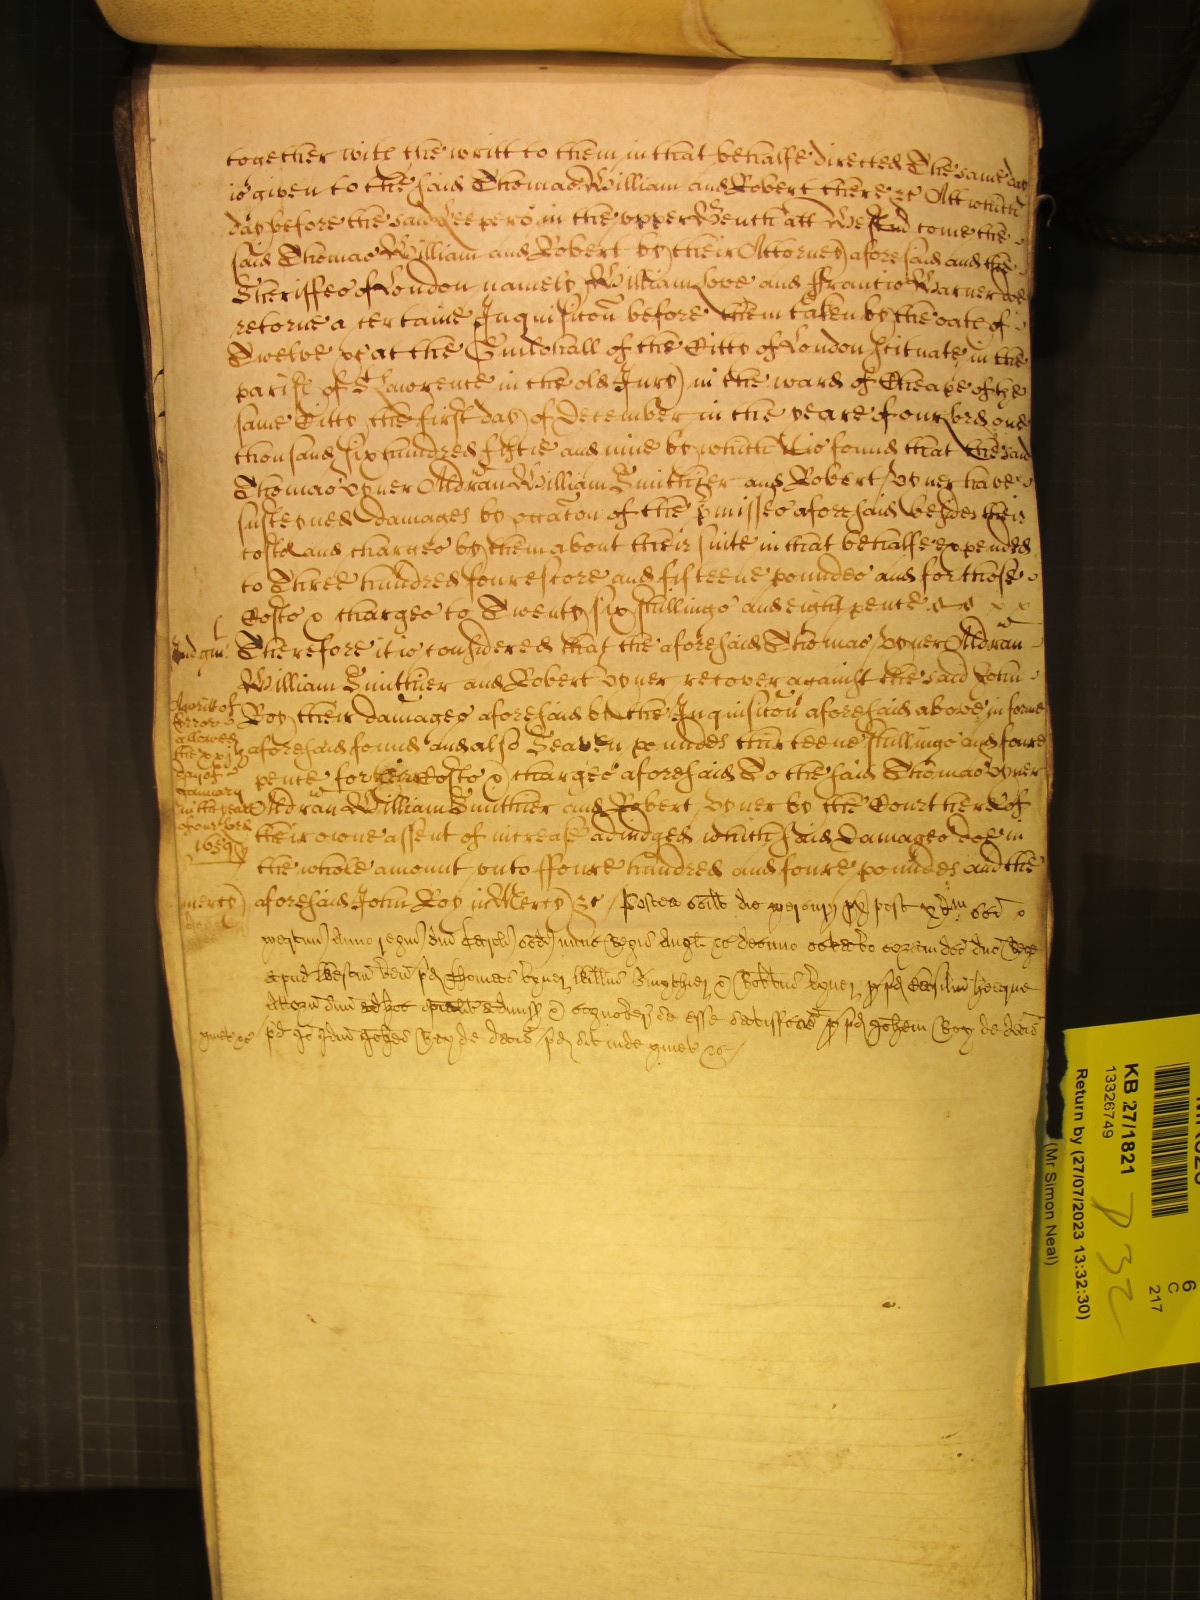 together with the writt to them in that behalfe directed The same day
is given to the said Thomas William and Robert there &c Att which
day before the said Keepers in the upper Bench att Westm come the
said Thomas William and Robert by their Attorney aforesaid and the
Sheriffes of London namely William Love and Francis Warner doe
retorne a certaine Inquisicõn before them taken by the oath of
Twelve &c at the Guildhall of the Citty of London scituate in the
parish of St Lawrence in the old Jury in the ward of Cheape of the
same Citty the first day of December in the yeare of our Lord one
thousand six hundred fiftie and nine by which it is found that the said
Thomas Vyner Aldrãn William Smithier and Robert Vyner have
susteyned damages by occac͠on of the p͠misses aforesaid besides their
costs and charges by them about their suite in that behalfe expended
to Three hundred fourescore and fifteene poundes and for those
Costs & charges to Twenty six shillings and eight pence
Judgm̃t
Therefore it is considered that the aforesaid Thomas Vyner Aldrãn
William Smithier and Robert Vyner recover against the said John
Roy their damages aforesaid by the Inquisicõn aforesaid above in forme
aforesaid found and also Seaven poundes thirteene shillings and foure
pence for their Costs & charges aforesaid To the said Thomas Vyner
Aldrãn William Smithier and Robert Vyner by the Court here of
their owne assent of increase adiudged which said damages doe in
the whole amount unto ffoure hundred and foure poundes and the
aforesaid John Roy in Mercy &c Postea scilt die
A writt of
Error
allowed
the xxj
day of
January
in the yeare
of our Lord
1659
mercy
Westm̃ Anno regni dñi Caroli scdi nunc Regis Angl &c decimo
apud Westm̃ ven̄ p̄d Thomas Vyner Willus Smythier & Robtus Vyner p
Attorñ suũ & cogn̄ se esse satisfact p p̄d Johem Roy de
p̄d Io id̄m Johes Roy de p̄d sit inde quiet &c
quiet &c
KB 27/1821
13326749
Return by (27/07/2023 13:32:30)
(Mr Simon Neal)
6
C
217